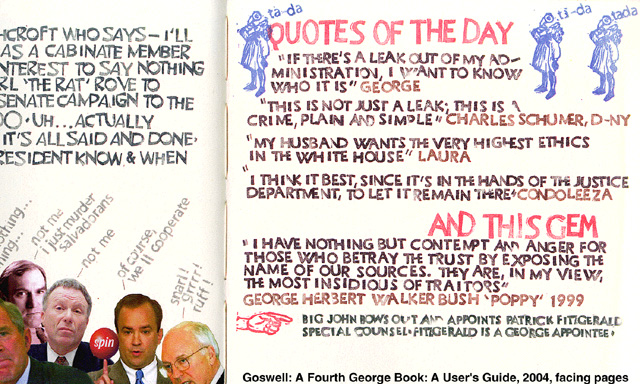 HCROFT WHO SAYS - I'LL
AS A CABINATE MEMBER
NTEREST TO SAY NOTHING
RL 'THE RAT' ROVE TO
SENATE CAMPAIGN TO THE
OO. UH... ACTUALLY
IT'S ALL SAID AND DONE.
RESIDENT KNOW & WHEN
othing...
ning...
not me
I just murder
salvadorans
not me
of course,
we'll cooperate
snarl!
grrr!
ruff!
spin
ta-da
ti-da
tada
QUOTES OF THE DAY
"IF THERE'S A LEAK OUT OF MY AD-
MINISTRATION, I WANT TO KNOW
WHO IT IS" GEORGE
"THIS IS NOT JUST A LEAK; THIS IS A
CRIME, PLAIN AND SIMPLE" CHARLES SCHUMER, D-NY
"MY HUSBAND WANTS THE VERY HIGHEST ETHICS
IN THE WHITE HOUSE" LAURA
"I THINK IT BEST, SINCE IT'S IN THE HANDS OF THE JUSTICE
DEPARTMENT, TO LET IT REMAIN THERE" CONDOLEEZA
AND THIS GEM
"I HAVE NOTHING BUT CONTEMPT AND ANGER FOR
THOSE WHO BETRAY THE TRUST BY EXPOSING THE
NAME OF OUR SOURCES. THEY ARE, IN MY VIEW,
THE MOST INSIDIOUS OF TRAITORS"
GEORGE HERBERT WALKER BUSH 'POPPY' 1999
BIG JOHN BOWS OUT AND APPOINTS PATRICK FITZGERALD
SPECIAL COUNSEL. FITZGERALD IS A GEORGE APPOINTEE.
Goswell: A Fourth George Book: A User's Guide, 2004, facing pages